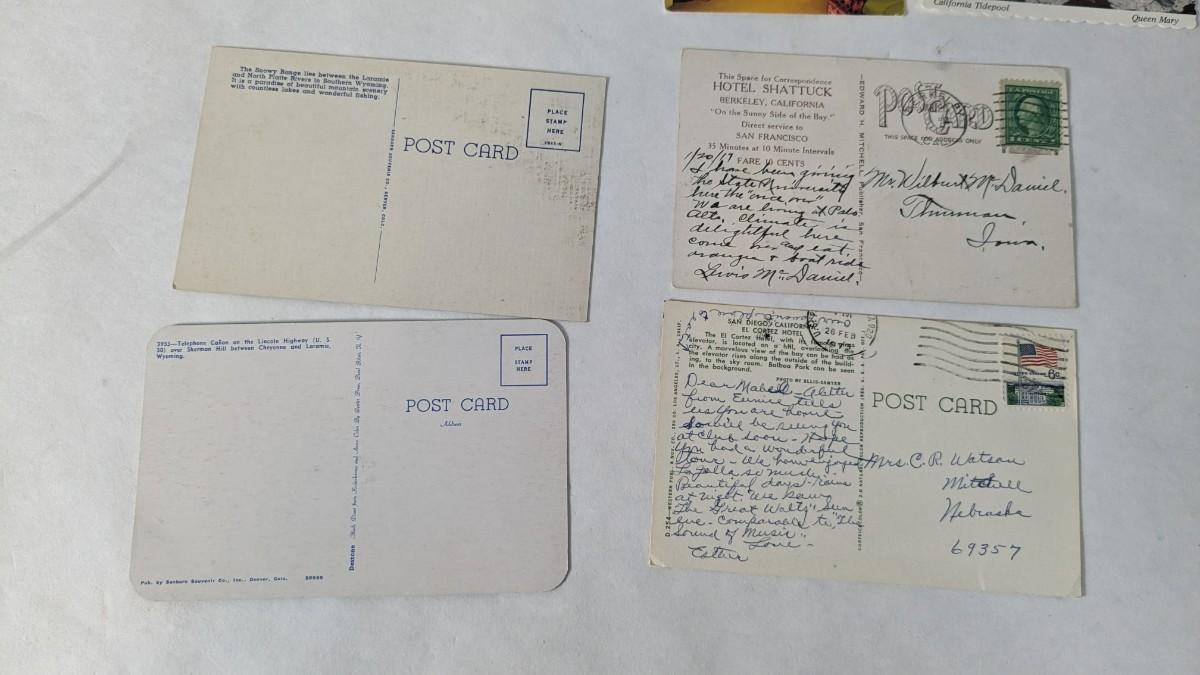 California Tidepool
Queen Mary
The Snowy Range lies between the Laramie
and North Platte Rivers in Southern Wyoming.
It is a paradise of beautiful mountain scenery
with countless lakes and wonderful fishing.
SANBORN SOUVENIR CO., DENVER, COLO.
POST CARD
PLACE
STAMP
HERE
This Space for Correspondence
HOTEL SHATTUCK
BERKELEY, CALIFORNIA
"On the Sunny Side of the Bay."
Direct service to
SAN FRANCISCO
35 Minutes at 10 Minute Intervals
FARE 10 CENTS
1/20/17
I have been giving
the State University
here the "once over"
We are living at Palo
Alto. Climate is
delightful here
come and eat
oranges & boat ride
Lewis McDaniel.
EDWARD H. MITCHELL, Publisher, San Francisco
POST CARD
THIS SPACE FOR ADDRESS ONLY
U.S. POSTAGE
Mr. Wilbur McDaniel.
Thurman,
Iowa.
3955—Telephone Cañon on the Lincoln Highway (U. S.
30) over Sherman Hill between Cheyenne and Laramie,
Wyoming.
Dextone
POST CARD
Address
PLACE
STAMP
HERE
Pub. by Sanborn Souvenir Co., Inc., Denver, Colo.
SAN DIEGO, CALIFORNIA
EL CORTEZ HOTEL
The El Cortez Hotel, with its famous
elevator, is located on a hill, overlooking the
city. A marvelous view of the bay can be had as
the elevator rises along the outside of the build-
ing, to the sky room. Balboa Park can be seen
in the background.
PHOTO BY ELLIS-SAWYER
26 FEB
POST CARD
6c
Dear Mabel - A letter
from Eunice tells
us you are home
So will be seeing you
at Club soon - Hope
you had a wonderful
tour - We have enjoyed
La Jolla so much.
Beautiful days - rains
at night. We saw
"The Great Waltz" Sun
eve. Comparable to "The
Sound of Music".
Love -
Esther
Mrs. C. R. Watson
Mitchell
Nebraska
69357